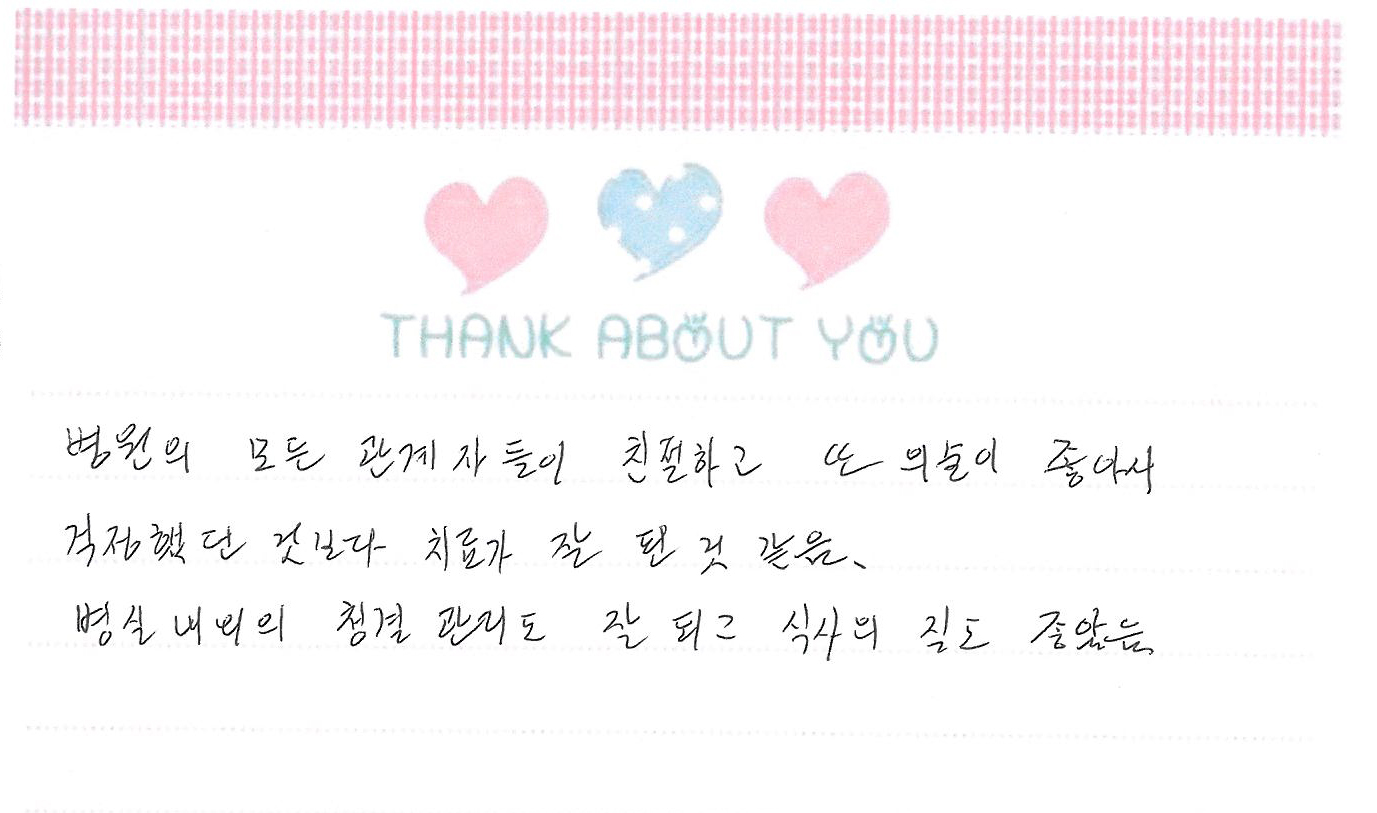 THANK ABOUT YOU
병원의 모든 관계자들이 친절하고 또 의술이 좋아서
걱정했던 것보다 치료가 잘 된 것 같음.
병실 내외의 청결 관리도 잘 되고 식사의 질도 좋았음.